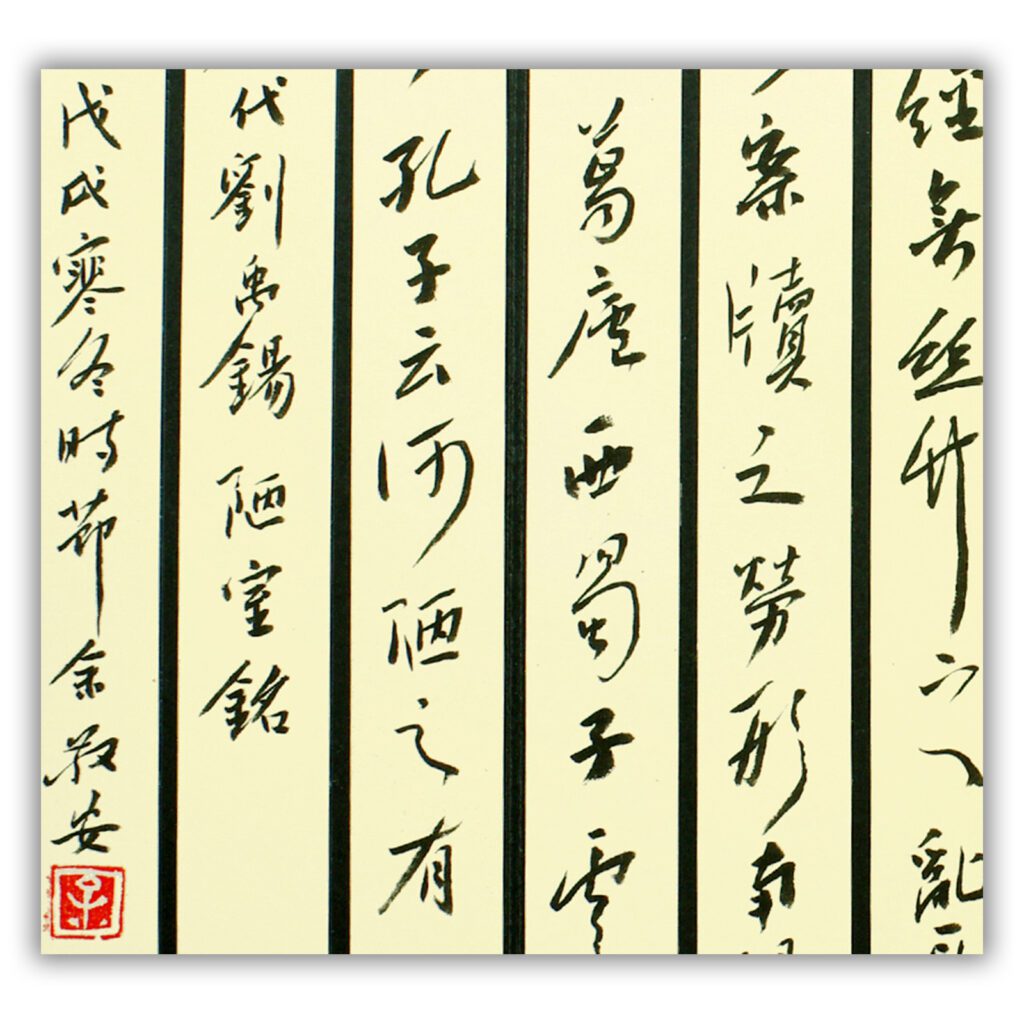 經無絲竹之亂
案牘之勞形南
葛廬西蜀子雲
孔子云何陋之有
代劉禹錫 陋室銘
戊戌寒冬時節 余敬安